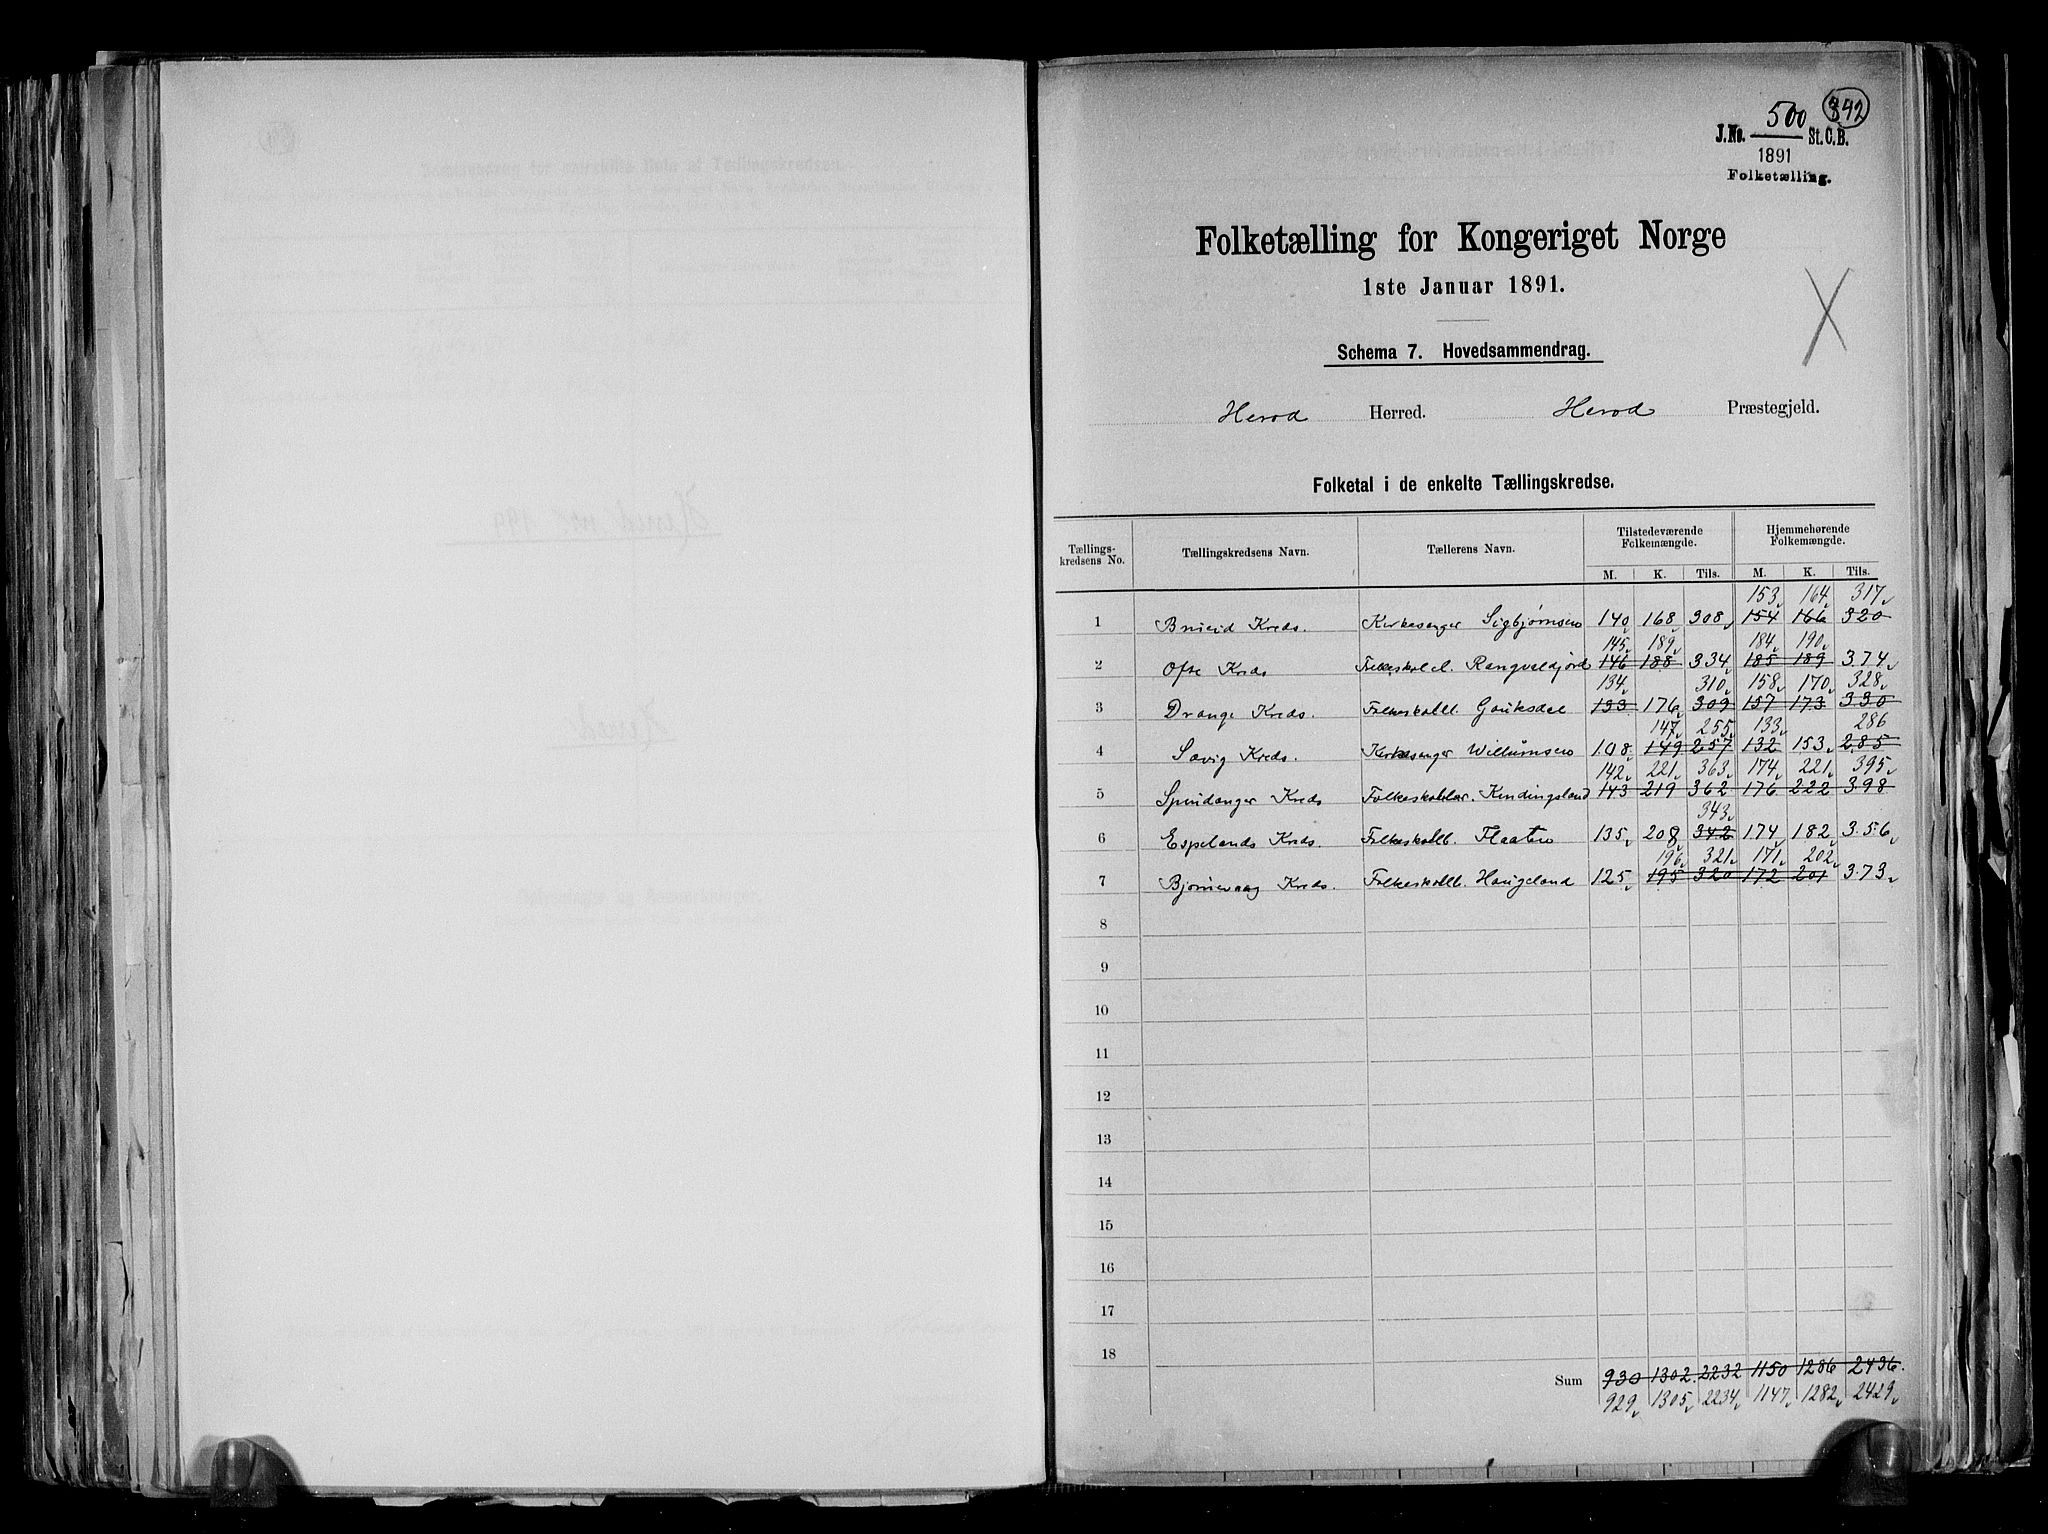 500 342
J.No. St.C.B.
1891
Folketælling.
Folketælling for Kongeriget Norge
1ste Januar 1891.
Schema 7. Hovedsammendrag.
Herod Herred. Herod Præstegjeld.
Folketal i de enkelte Tællingskredse.
Tællings-kredsens No. Tællingskredsens Navn. Tællerens Navn. Tilstedeværende Folkemængde. Hjemmehørende Folkemængde.
M. K. Tils. M. K. Tils.
153 164 317
1 Brueid Kreds. Kirkesanger Sigbjørnsen 140 168 308 154 166 320
145 189 184 190
2 Ofte Kreds Folkeskol.l. Rangvaldjord 146 188 334 185 189 374
134 310 158 170 328
3 Drange Kreds. Folkeskoll. Gauksdal 133 176 309 157 173 330
147 255 133 286
4 Sævig Kreds. Kirkesanger Willumsen 108 149 257 132 153 285
142 221 363 174 221 395
5 Spindanger Kreds Folkeskollær. Kindingsland 143 219 362 176 222 398
343
6 Espelands Kreds. Folkeskoll. Flaaten 135 208 342 174 182 356
196 321 171 202
7 Bjørnevaag Kreds. Folkeskoll. Haugeland 125 195 320 172 201 373
8
9
10
11
12
13
14
15
16
17
18
Sum 930 1302 2232 1150 1286 2436
929 1305 2234 1147 1282 2429